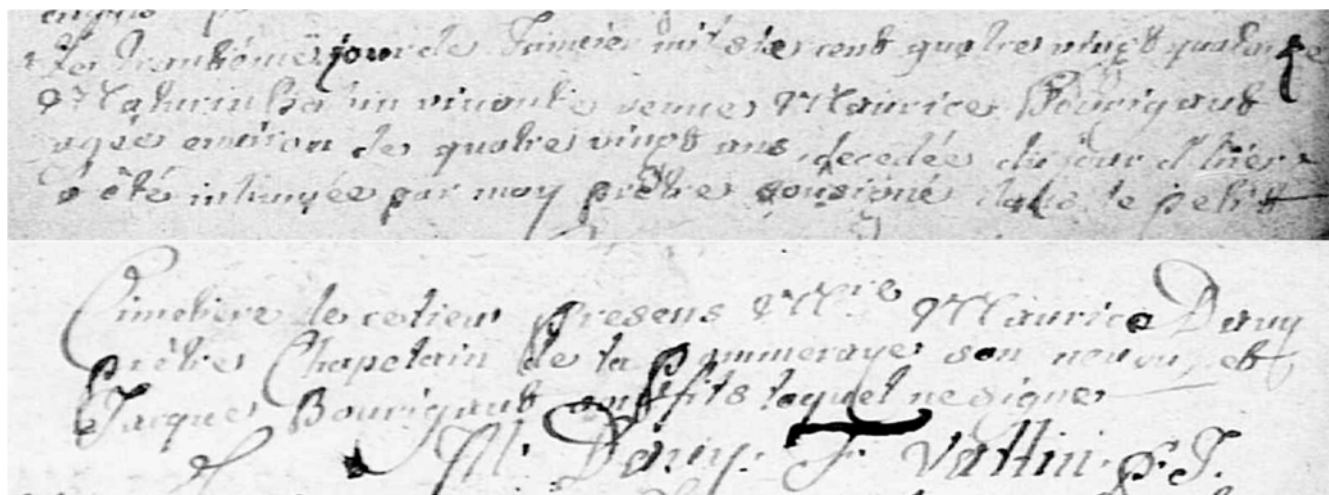 Le trentième jour de Janvier mil six cent quatre vingt quatorze
Mathurin vivante veuve Maurice Bourigault
agée environ de quatre vingt ans decedée du jour d'hier
a été inhumée par moy prêtre sousigné dans le petit
Cimetière de ce lieu presens M.re Maurice Davy
prêtre Chapelain de la pommeraye son neveu, et
Jacque Bourigault son fils lequel ne signe
M. Davy. F. Vattin. p.